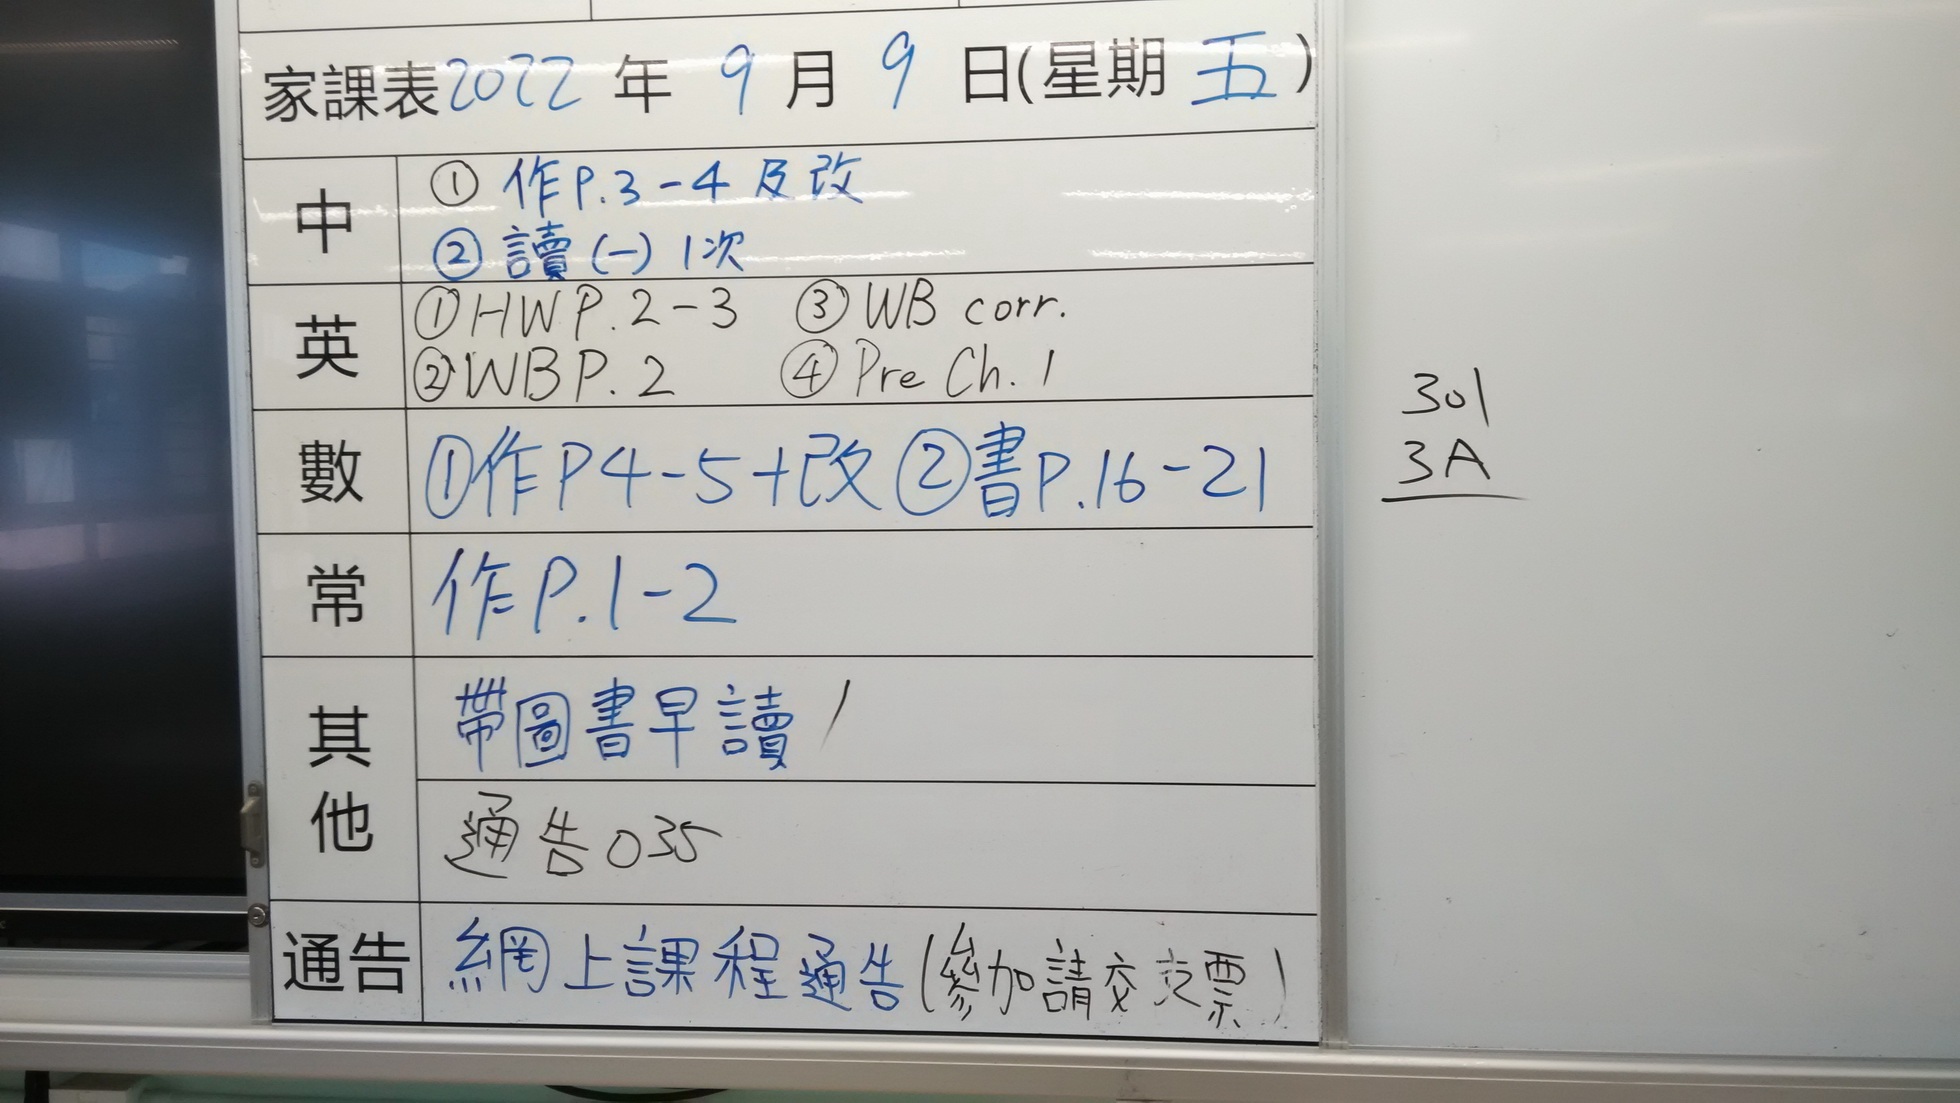 家課表2022年 9月 9日(星期五)
中
① 作P.3-4及改
② 讀(一)1次
英
①HW P.2-3 ③WB corr.
②WB P.2 ④Pre Ch.1
數
①作P4-5+改②書P.16-21
常
作P.1-2
其他
帶圖書早讀/
通告035
通告
網上課程通告(參加請交支票)
301
3A